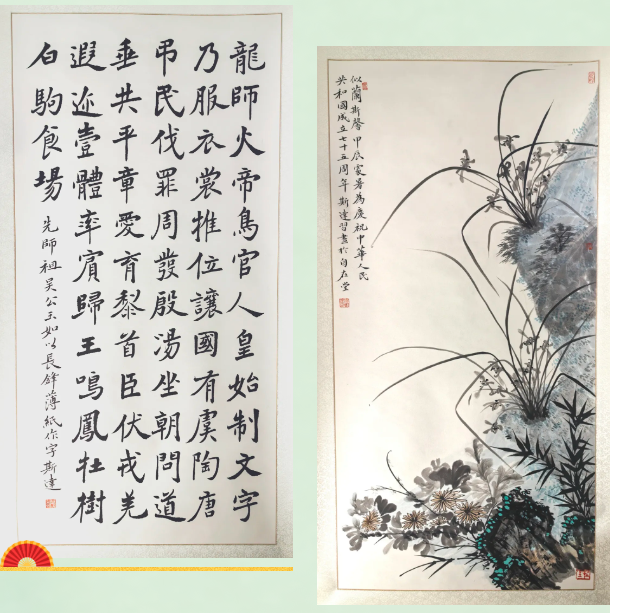 龍師火帝鳥官人皇始制文字
乃服衣裳推位讓國有虞陶唐
吊民伐罪周發殷湯坐朝問道
垂共平章愛育黎首臣伏戎羌
遐迩壹體率賓歸王鳴鳳在樹
白駒食場 先師祖吴公玉如以長鋒薄紙作字斯達
似蘭斯馨 甲辰暑為慶祝中華人民
共和國成立七十五周年斯達習畫於自在堂